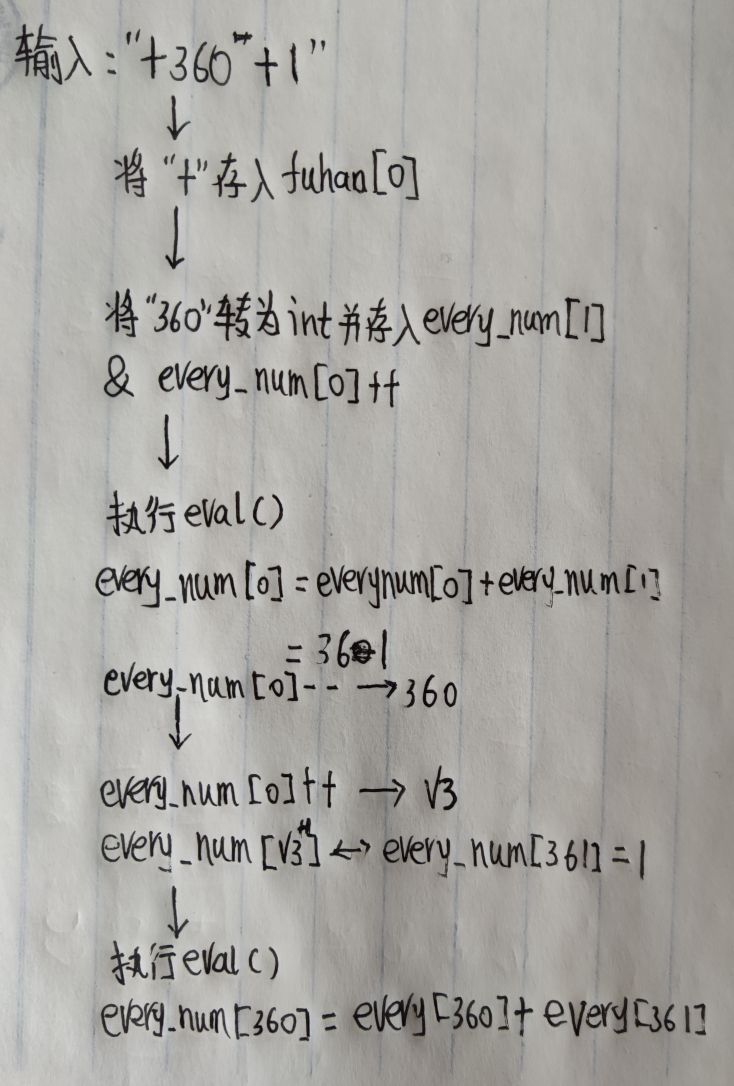 输入："+360+1"
↓
将"+"存入fuhao[0]
↓
将"360"转为int并存入every_num[1]
& every_num[0]++
↓
执行eval()
every_num[0]=everynum[0]+every_num[1]
=361
every_num[0]-- → 360
↓
every_num[0]++ → √3
every_num[√3] ↔ every_num[361]=1
↓
执行eval()
every_num[360] = every[360]+every[361]